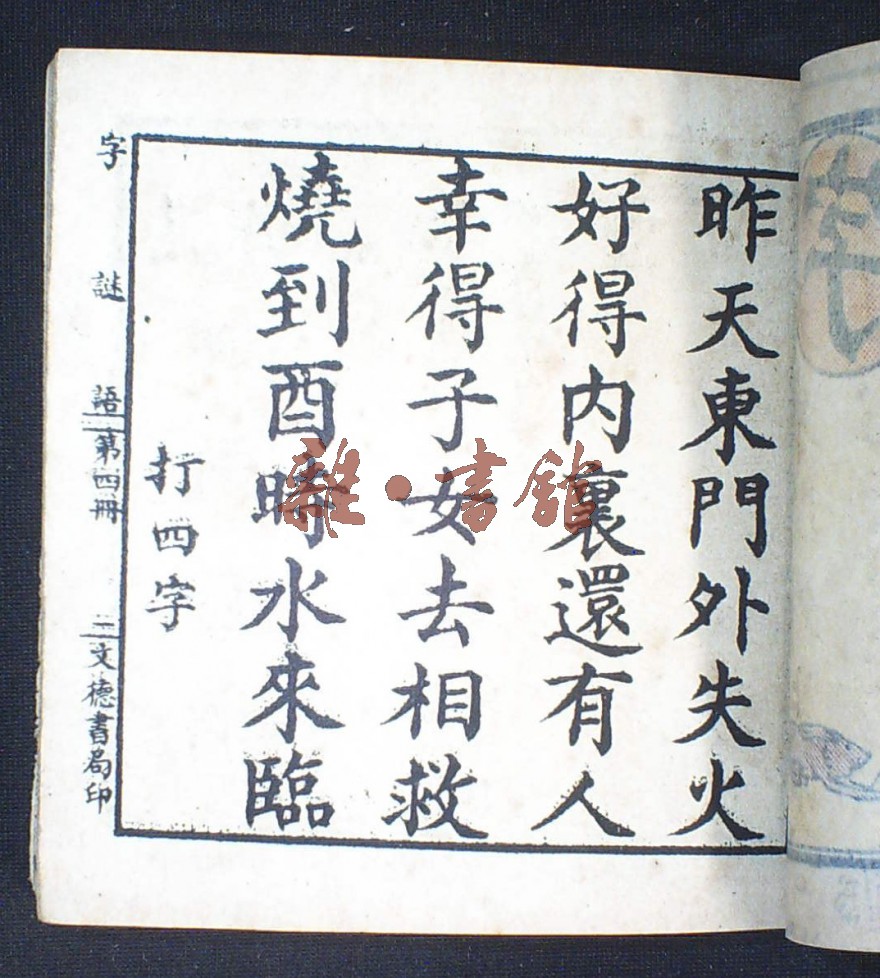 昨天東門外失火
好得内裏還有人
幸得子女去相救
燒到酉時水來臨
打四字
字謎語 第四冊 二 文德書局印
雞·書館